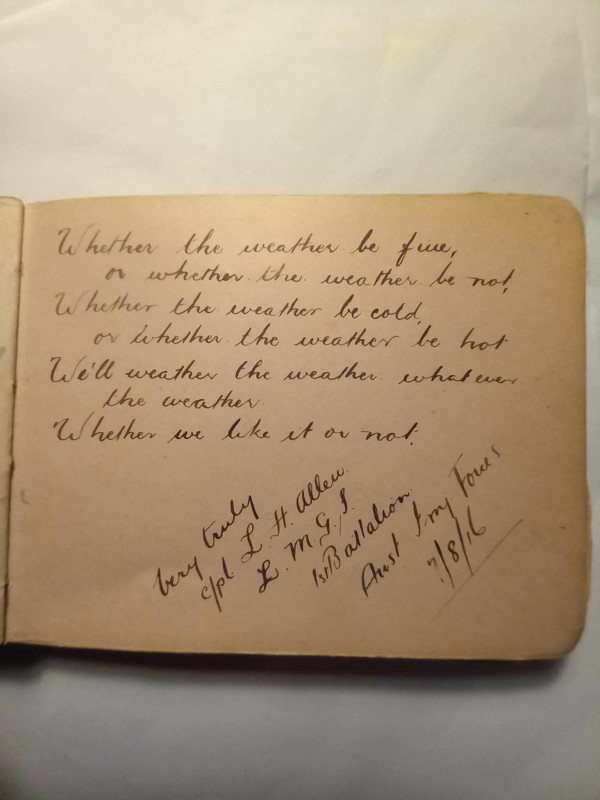 Whether the weather be fine,
or whether the weather be not,
Whether the weather be cold,
or whether the weather be hot
We'll weather the weather whatever
the weather.
Whether we like it or not.
Very truly
c/pl L. H. Allen.
L. M. G. S.
1st Battalion
Aust Imy Forces
7/8/16